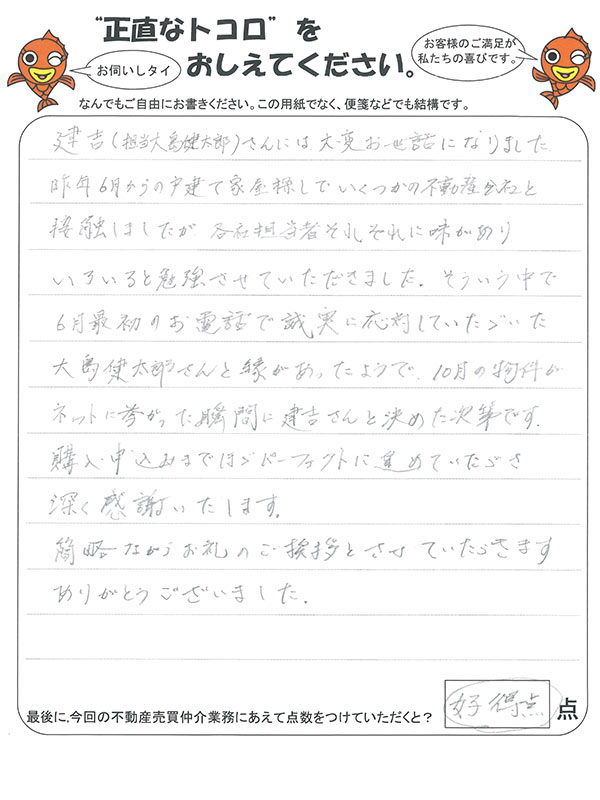 “正直なトコロ”を
おしえてください。
お伺いしタイ
お客様のご満足が
私たちの喜びです。
なんでもご自由にお書きください。この用紙でなく、便箋などでも結構です。
建吉(担当大島健太郎)さんには、大変お世話になりました
昨年6月からの戸建て家屋探しでいくつかの不動産会社と
接触しましたが 各社担当者それぞれに味があり
いろいろと勉強させていただきました。そういう中で
6月最初のお電話で誠実に応対していただいた
大島健太郎さんと縁があったようで、10月の物件が
ネットに挙がった瞬間に建吉さんと決めた次第です。
購入申込みまでほぼパーフェクトに進めていただき
深く感謝いたします。
簡略ながらお礼のご挨拶とさせていただきます
ありがとうございました。
最後に、今回の不動産売買仲介業務にあえて点数をつけていただくと？
好得点 点